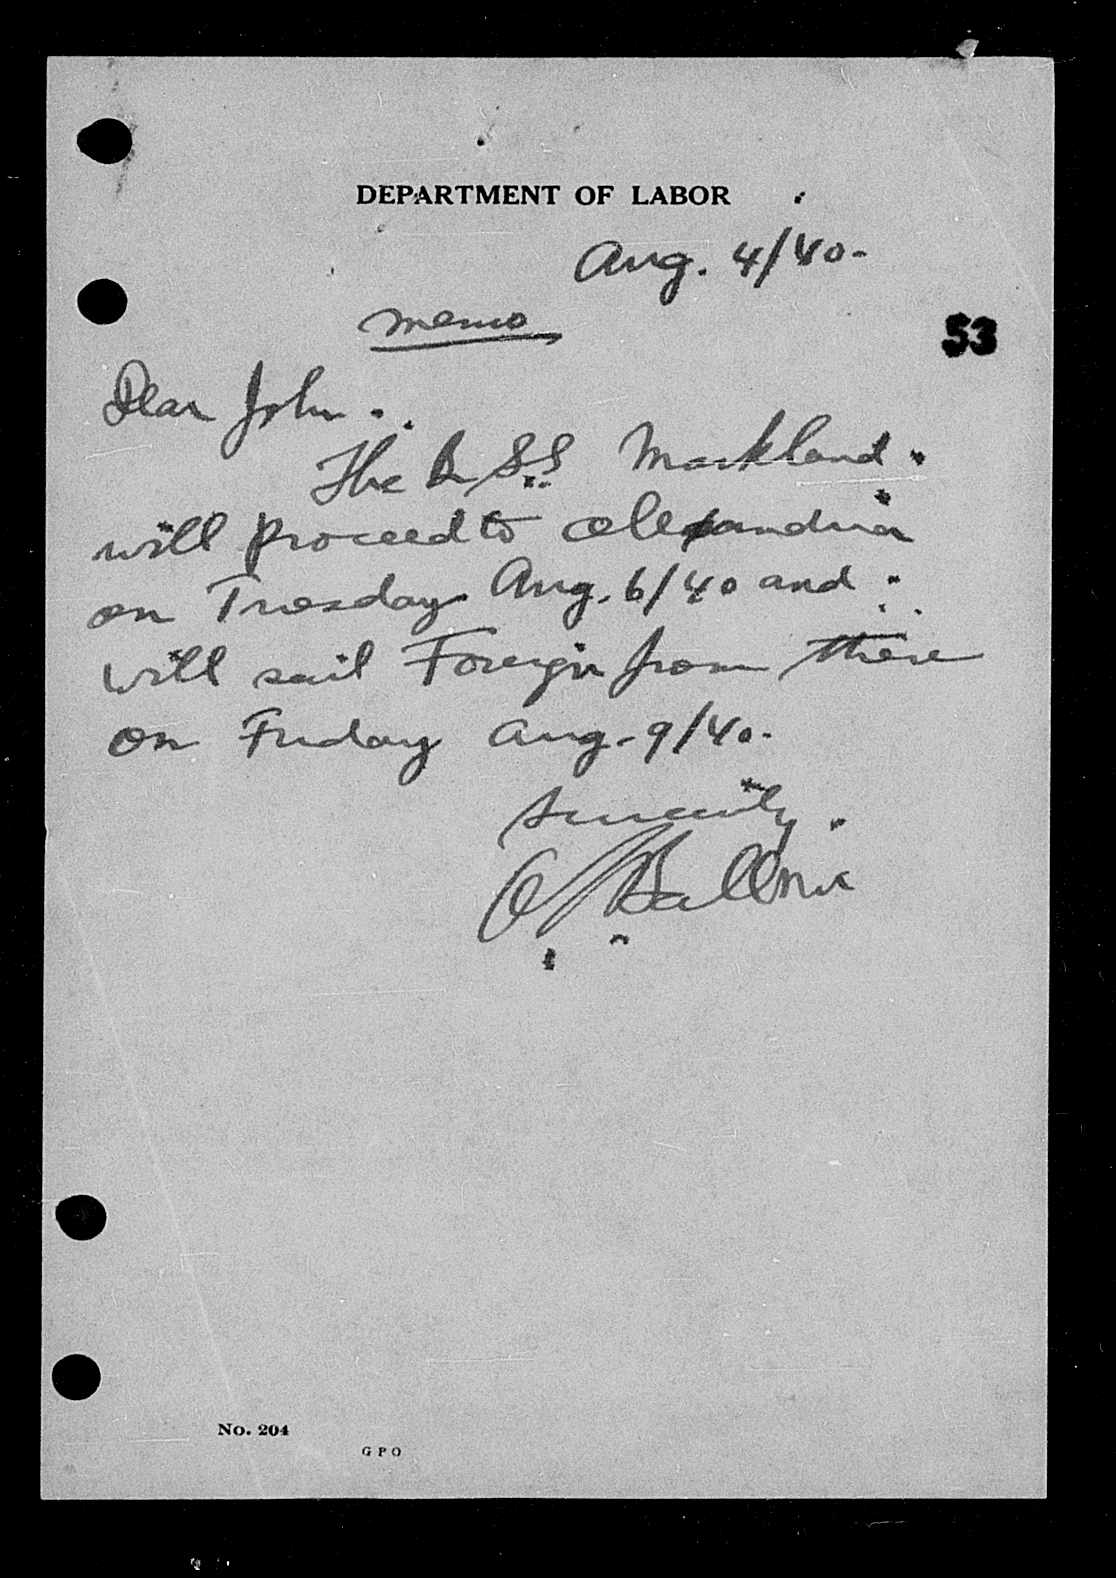 DEPARTMENT OF LABOR
Aug. 4/40-
memo
53
Dear John.
The Br S.S Markland.
will proceed to Alexandria
on Tuesday Aug. 6/40 and
will sail Foreign from there
on Friday Aug. 9/40-
Sincerely
No. 204
GPO